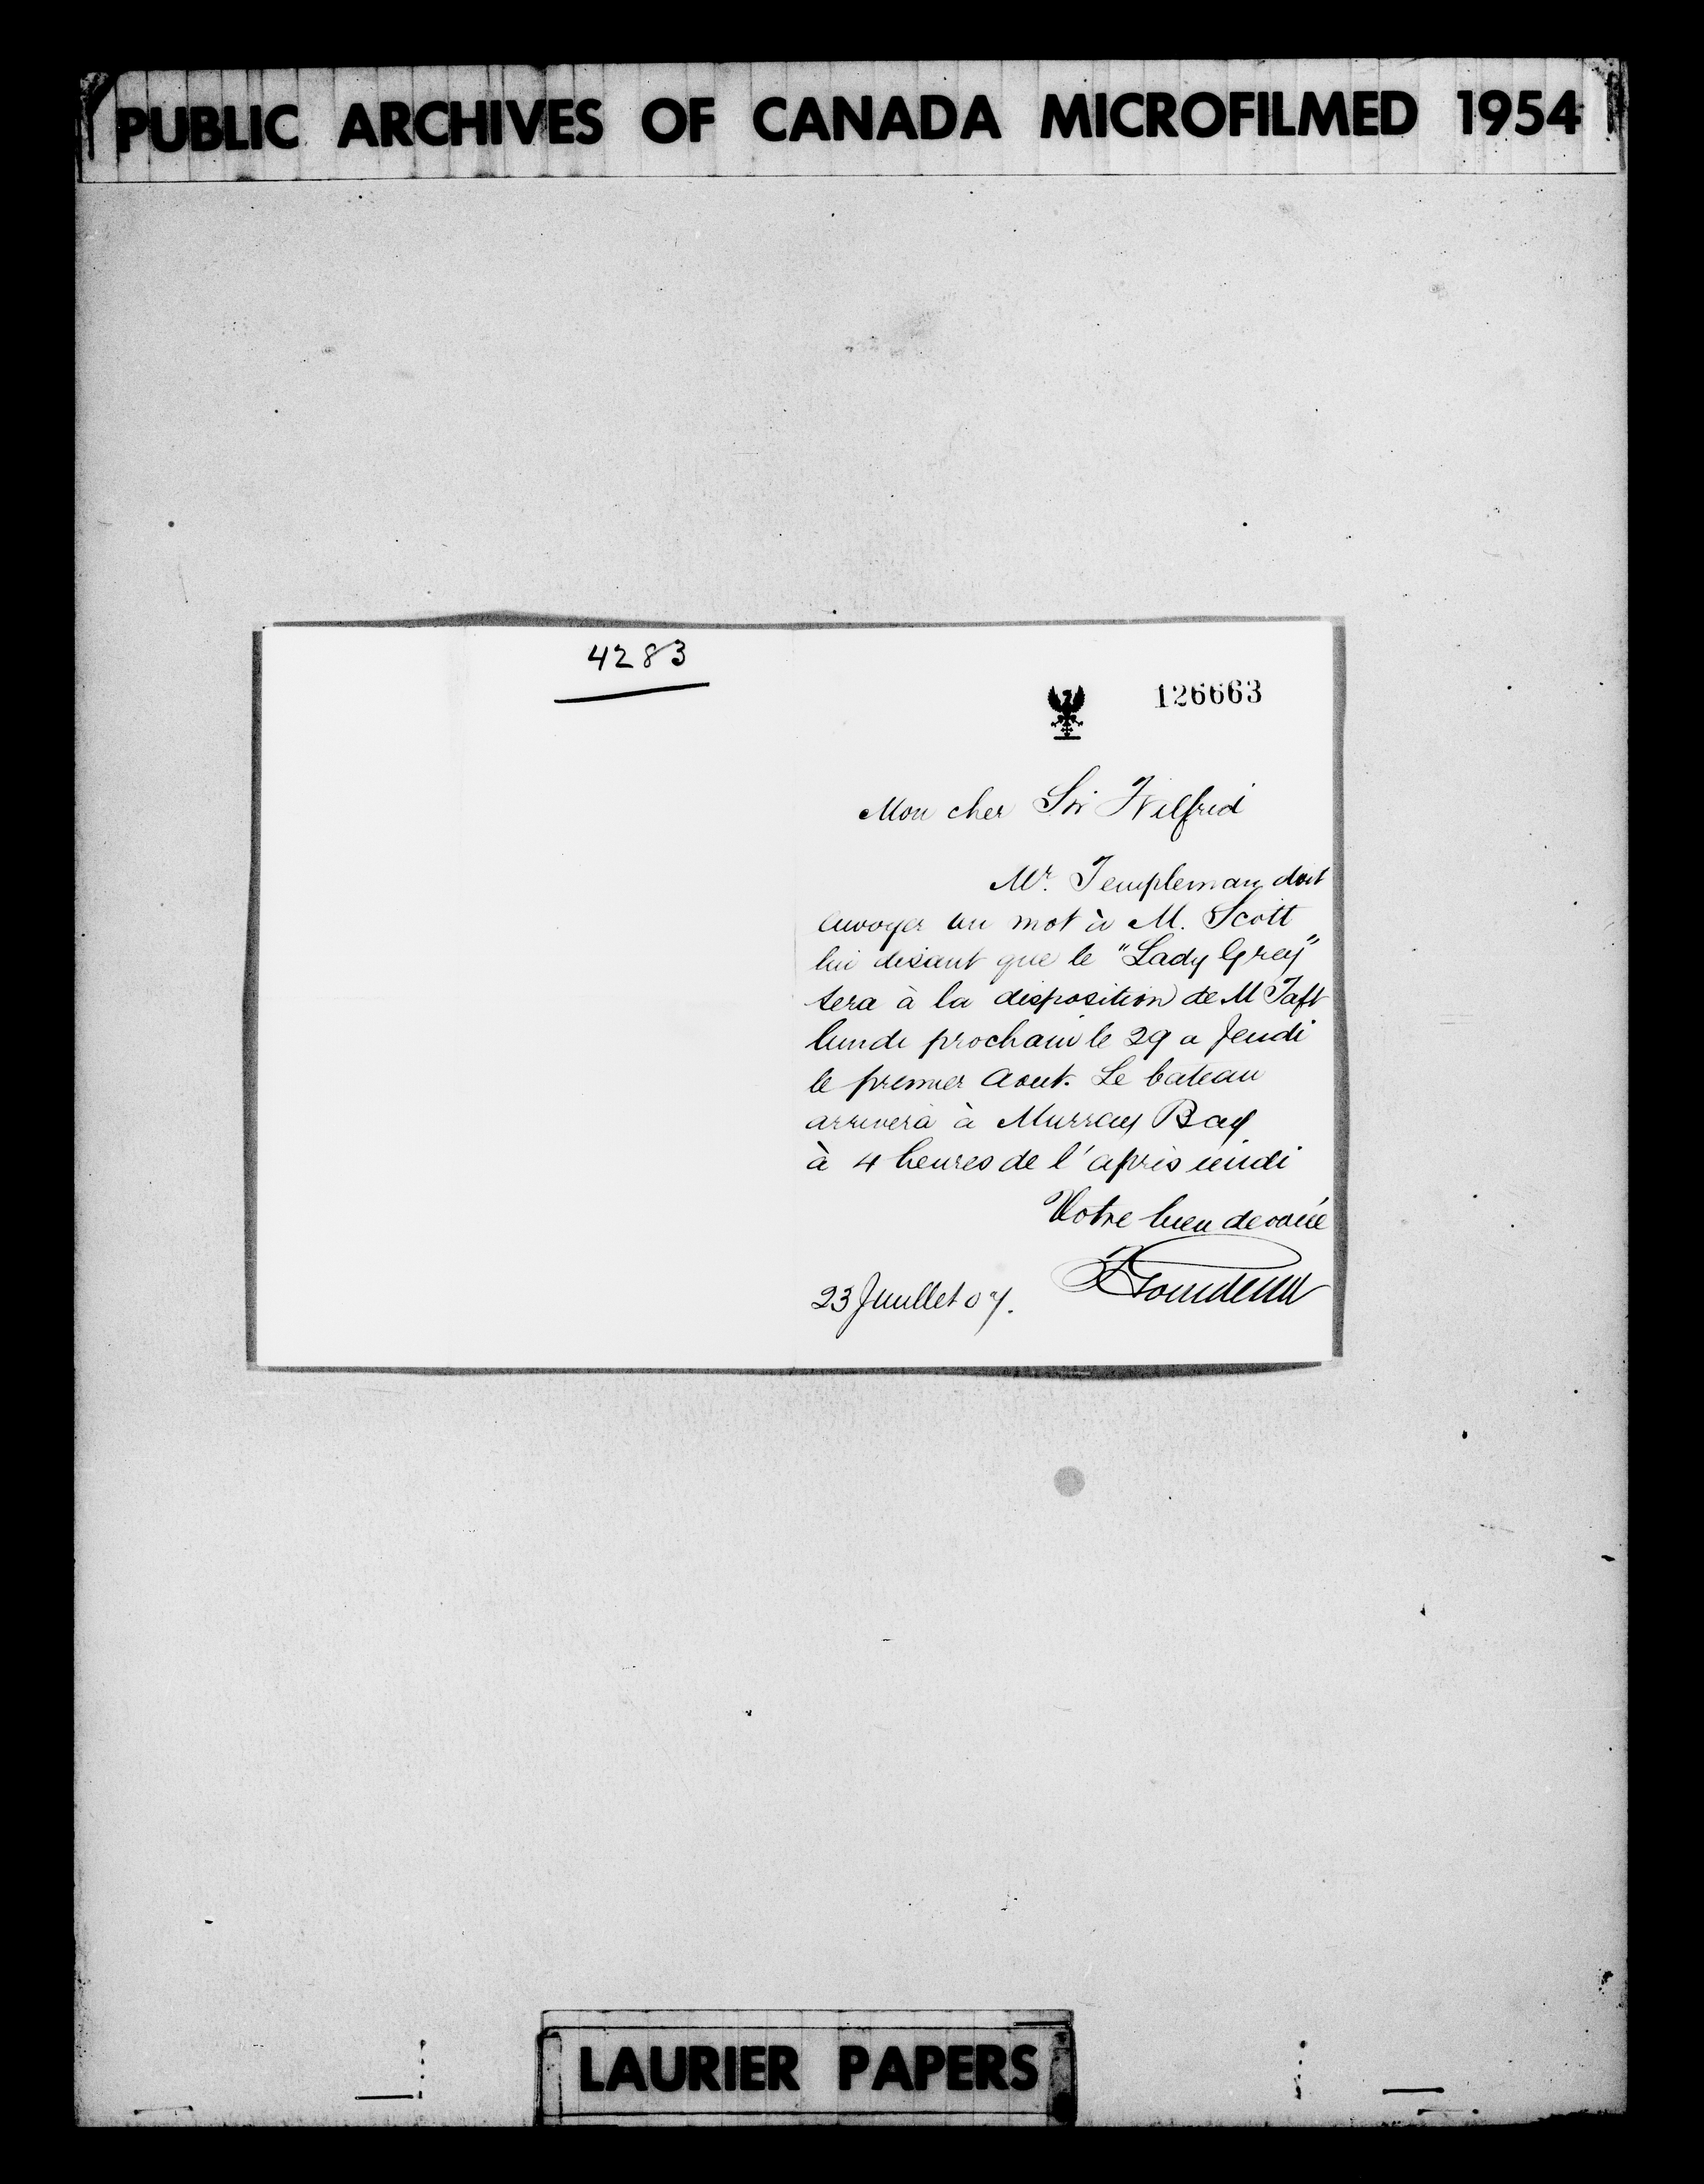 PUBLIC ARCHIVES OF CANADA MICROFILMED 1954
4283
126663
Mon cher Sir Wilfrid
Mr. Templeman doit
envoyer un mot à M. Scott
lui disant que le "Lady Grey"
sera à la disposition de M Taft
lundi prochain le 29 a Jeudi
le premier Aout. Le bateau
arrivera à Murray Bay
à 4 heures de l'après midi
Votre bien devoué
23 Juillet 07.
LAURIER PAPERS